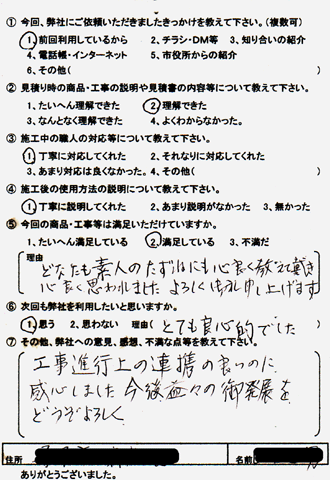 ①今回、弊社にご依頼いただきましたきっかけを教えて下さい。(複数可)
1、前回利用しているから 2、チラシ・DM等 3、知り合いの紹介
4、電話帳・インターネット 5、市役所からの紹介
6、その他( )
②見積り時の商品・工事の説明や見積書の内容等について教えて下さい。
1、たいへん理解できた 2、理解できた
3、なんとなく理解できた 4、よくわからなかった。
③施工中の職人の対応等について教えて下さい。
1、丁寧に対応してくれた 2、それなりに対応してくれた
3、あまり対応は良くなかった。 4、その他( )
④施工後の使用方法の説明について教えて下さい。
1、丁寧に説明してくれた 2、あまり説明がなかった 3、無かった
⑤今回の商品・工事等は満足いただけていますか。
1、たいへん満足している 2、満足している 3、不満だ
理由
どなたも素人のたずねにも心良く教えて戴き
心良く思われました よろしくお願い申し上げます
⑥次回も弊社を利用したいと思いますか。
1、思う 2、思わない 理由( とても良心的でした )
⑦その他、弊社への意見、感想、不満な点等を教えて下さい。
工事進行上の連携の良いのに
感心しました 今後益々の御発展を
どうぞよろしく
住所 名前
ありがとうございました。